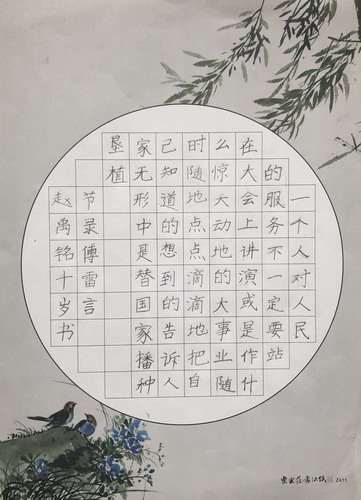 一个人对人民
的服务不一定要站
在大会上讲演或是作什
么惊天动地的大事业随
时随地点点滴滴地把自
己知道的想到的告诉人
家无形中是替国家播种
垦植
节录傅雷言
赵禹铭十岁书